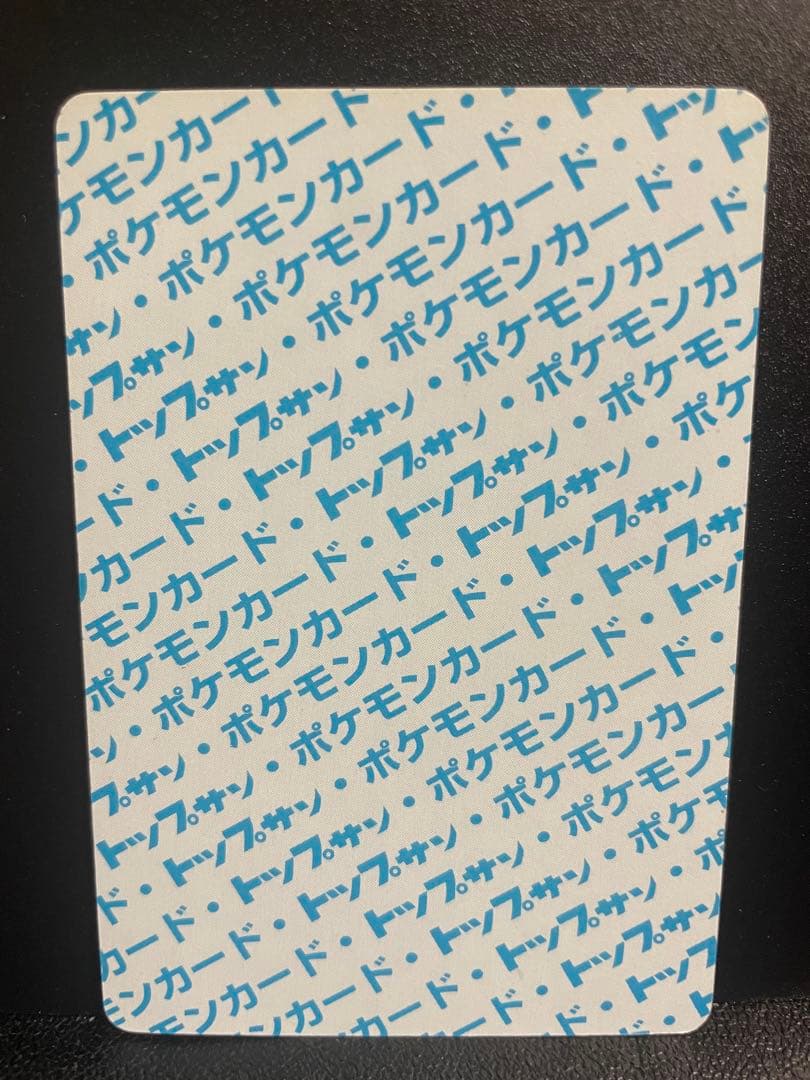 ンカー
ケモンカー
・ポケモンカード
サン・ポケモンカード・
ップサン・ポケモンカード・ト
・トップサン・ポケモンカード・トッ
ード・トップサン・ポケモンカード・ト
カード・トップサン・ポケモンカード
モンカード・トップサン・ポケモンカー
ポケモンカード・トップサン・ポケモン
ン・ポケモンカード・トップサン・ポケ
プサン・ポケモンカード・トップサン・
トップサン・ポケモンカード・トップサ
ド・トップサン・ポケモンカード・トッ
カード・トップサン・ポケモンカード・
モンカード・トップサン・ポケモンカー
モンカード・トップサン・ポケモン
ンカード・トップサン・ポケ
カード・トップサン・ポ
ド・トップサン
ド・トップ